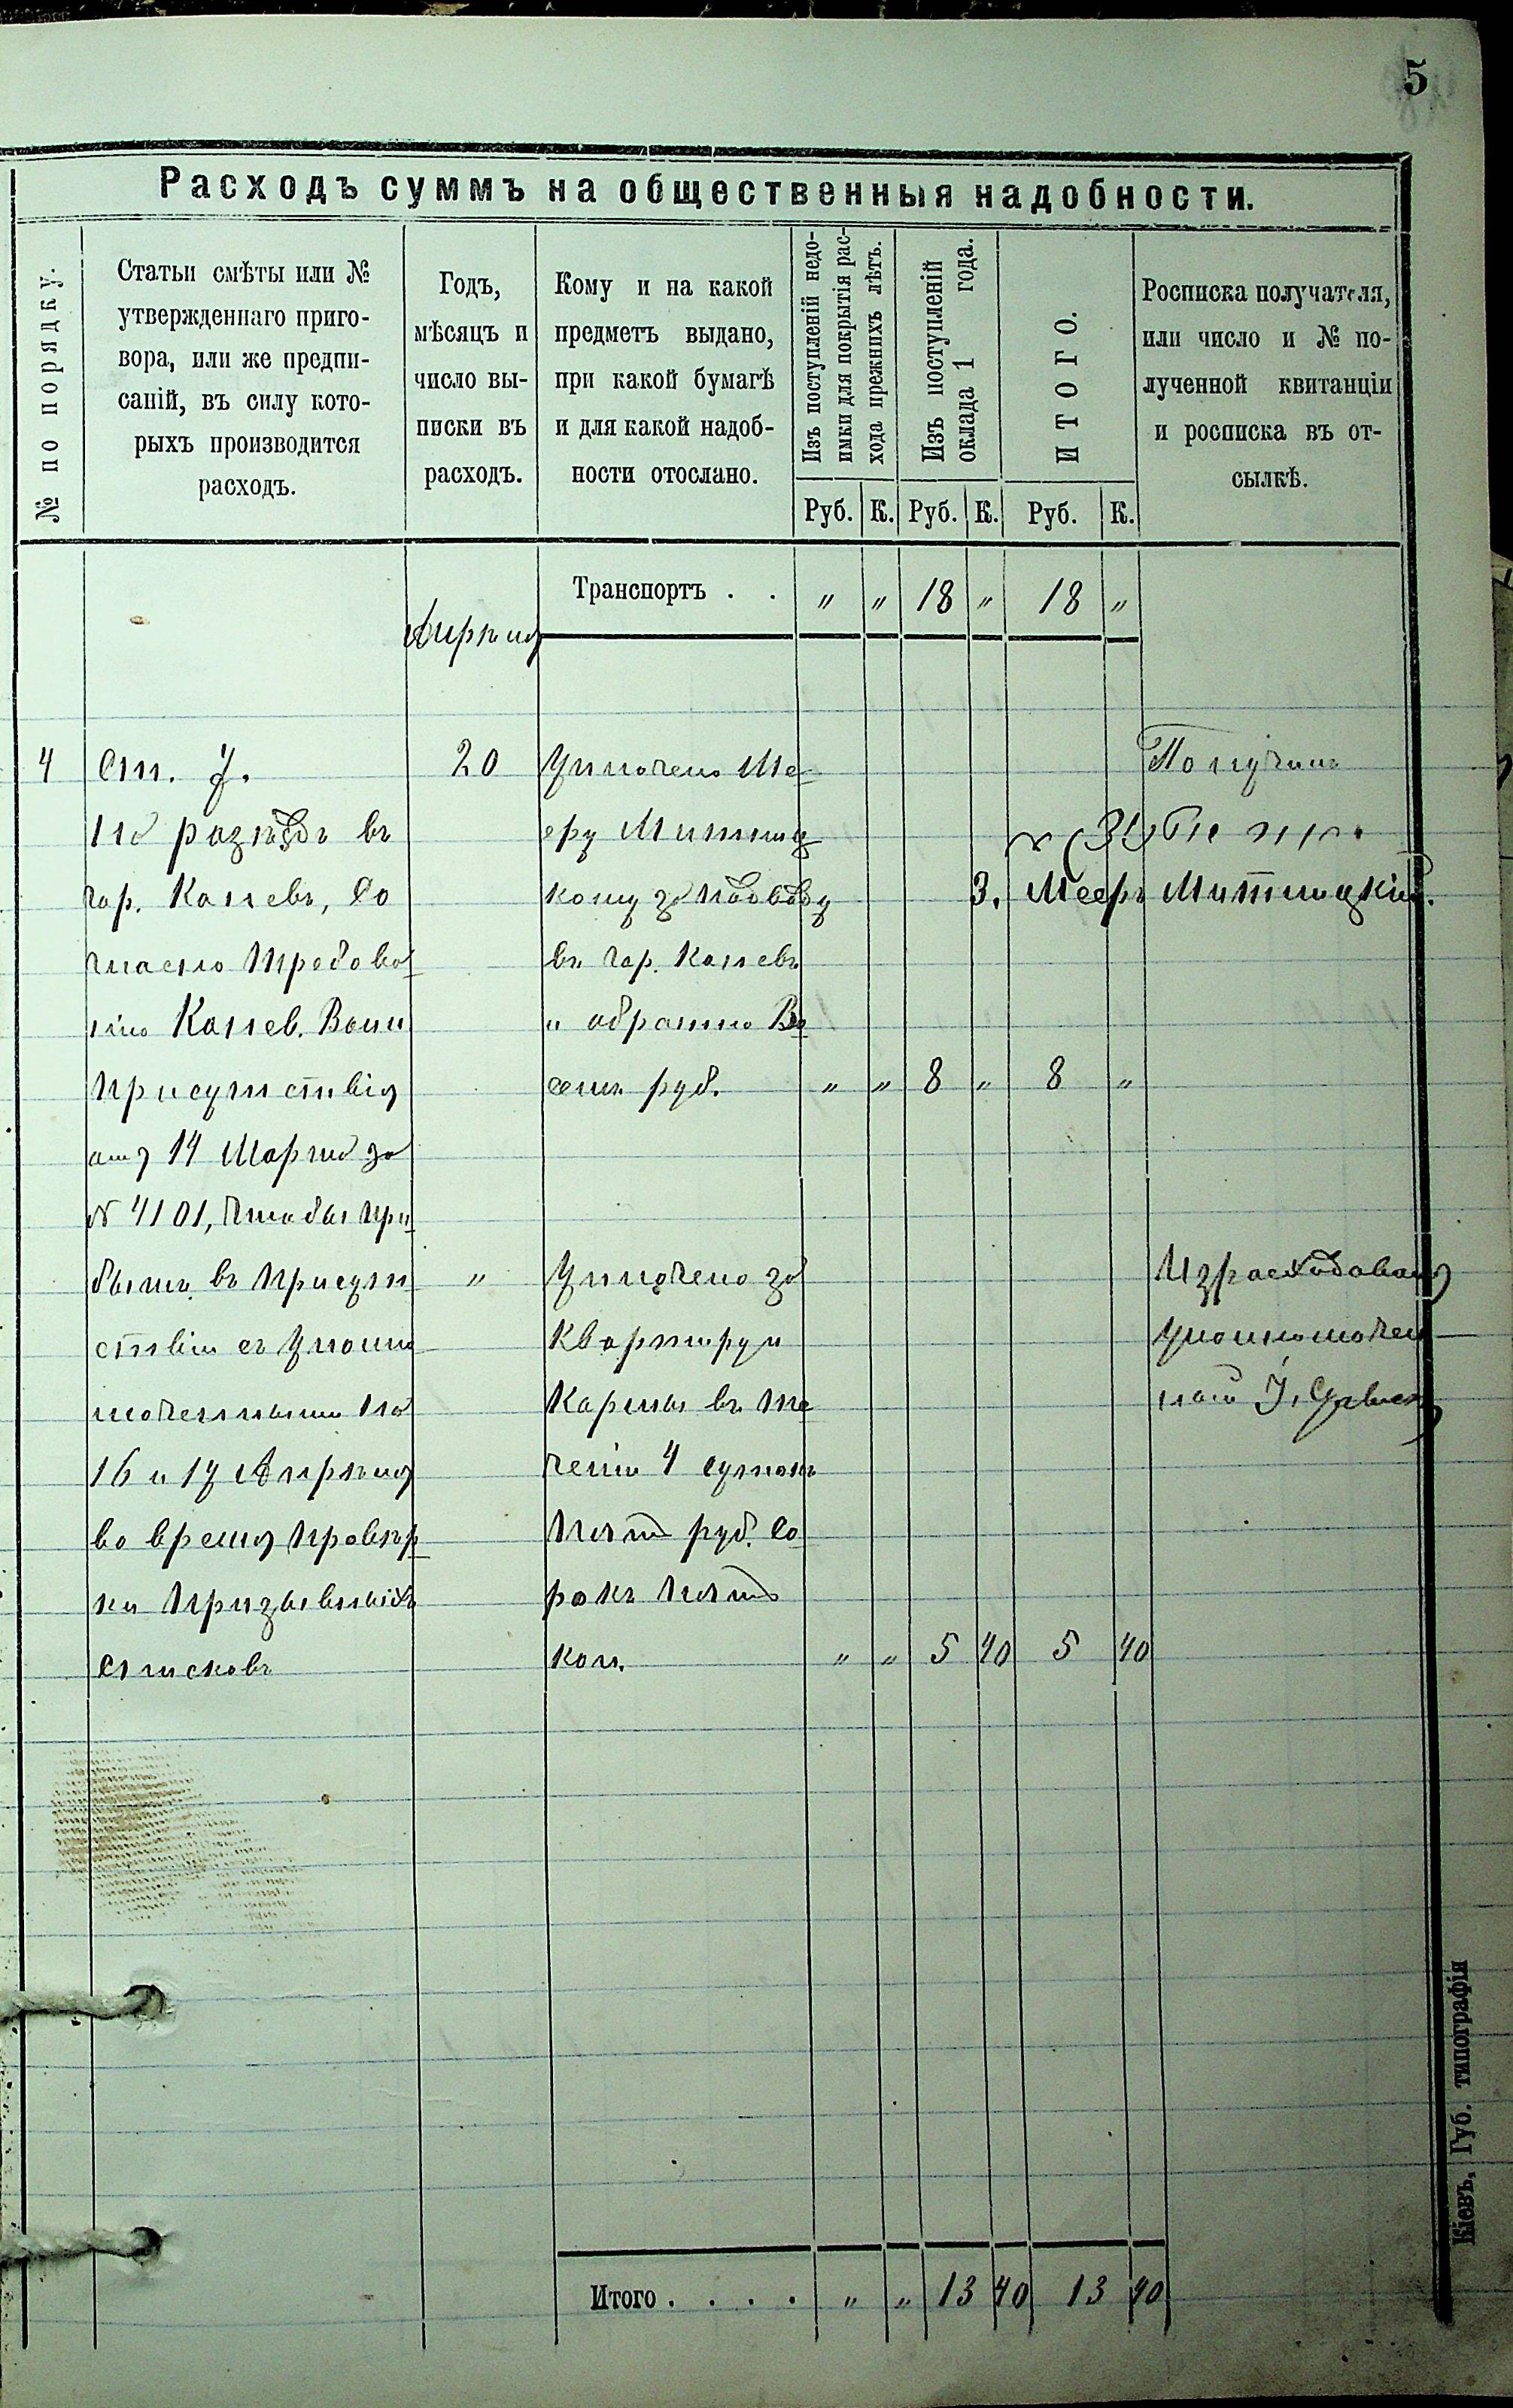 5
Расходъ суммъ на общественныя надобности.
№ по порядку.
Статьи смѣты или №
утвержденнаго приго-
вора, или же предпи-
саній, въ силу кото-
рыхъ производится
расходъ.
Годъ,
мѣсяцъ и
число вы-
писки въ
расходъ.
Кому и на какой
предметъ выдано,
при какой бумагѣ
и для какой надоб-
ности отослано.
Изъ поступленій недо-
имки для покрытія рас-
хода прежнихъ лѣтъ.
Изъ поступленій
оклада 1 года.
ИТОГО.
Росписка получателя,
или число и № по-
лученной квитанціи
и росписка въ от-
сылкѣ.
Руб. К. Руб. К. Руб. К.
Транспортъ . . " " 18 " 18 "
Апрѣля
4
Ст. 7.
на разъѣзд въ
гор. Каневъ, со
гласно требова
нію Канев. Воин
присутствія
отъ 14 Марта за
№ 4101, чтобы при
быть въ присут
ствіи съ уполно
моченными на
16 и 17 Апрѣля
во время провѣр
ки призывныхъ
списковъ
20
Уплочено Ме
еру Митниц
кому за подводу
въ гор. Каневъ
и обратно Во
семь руб. " " 8 " 8 "
Получилъ
Мееръ Митницкій.
"
Уплочено за
квартиру и
харчи въ те
ченіи 4 сутокъ
пять руб. со
рокъ
коп. " " 5 40 5 40
Израсходовалъ
уполномочен
ный
Итого . . . . " " 13 40 13 40
Кіевъ, Губ. типографія